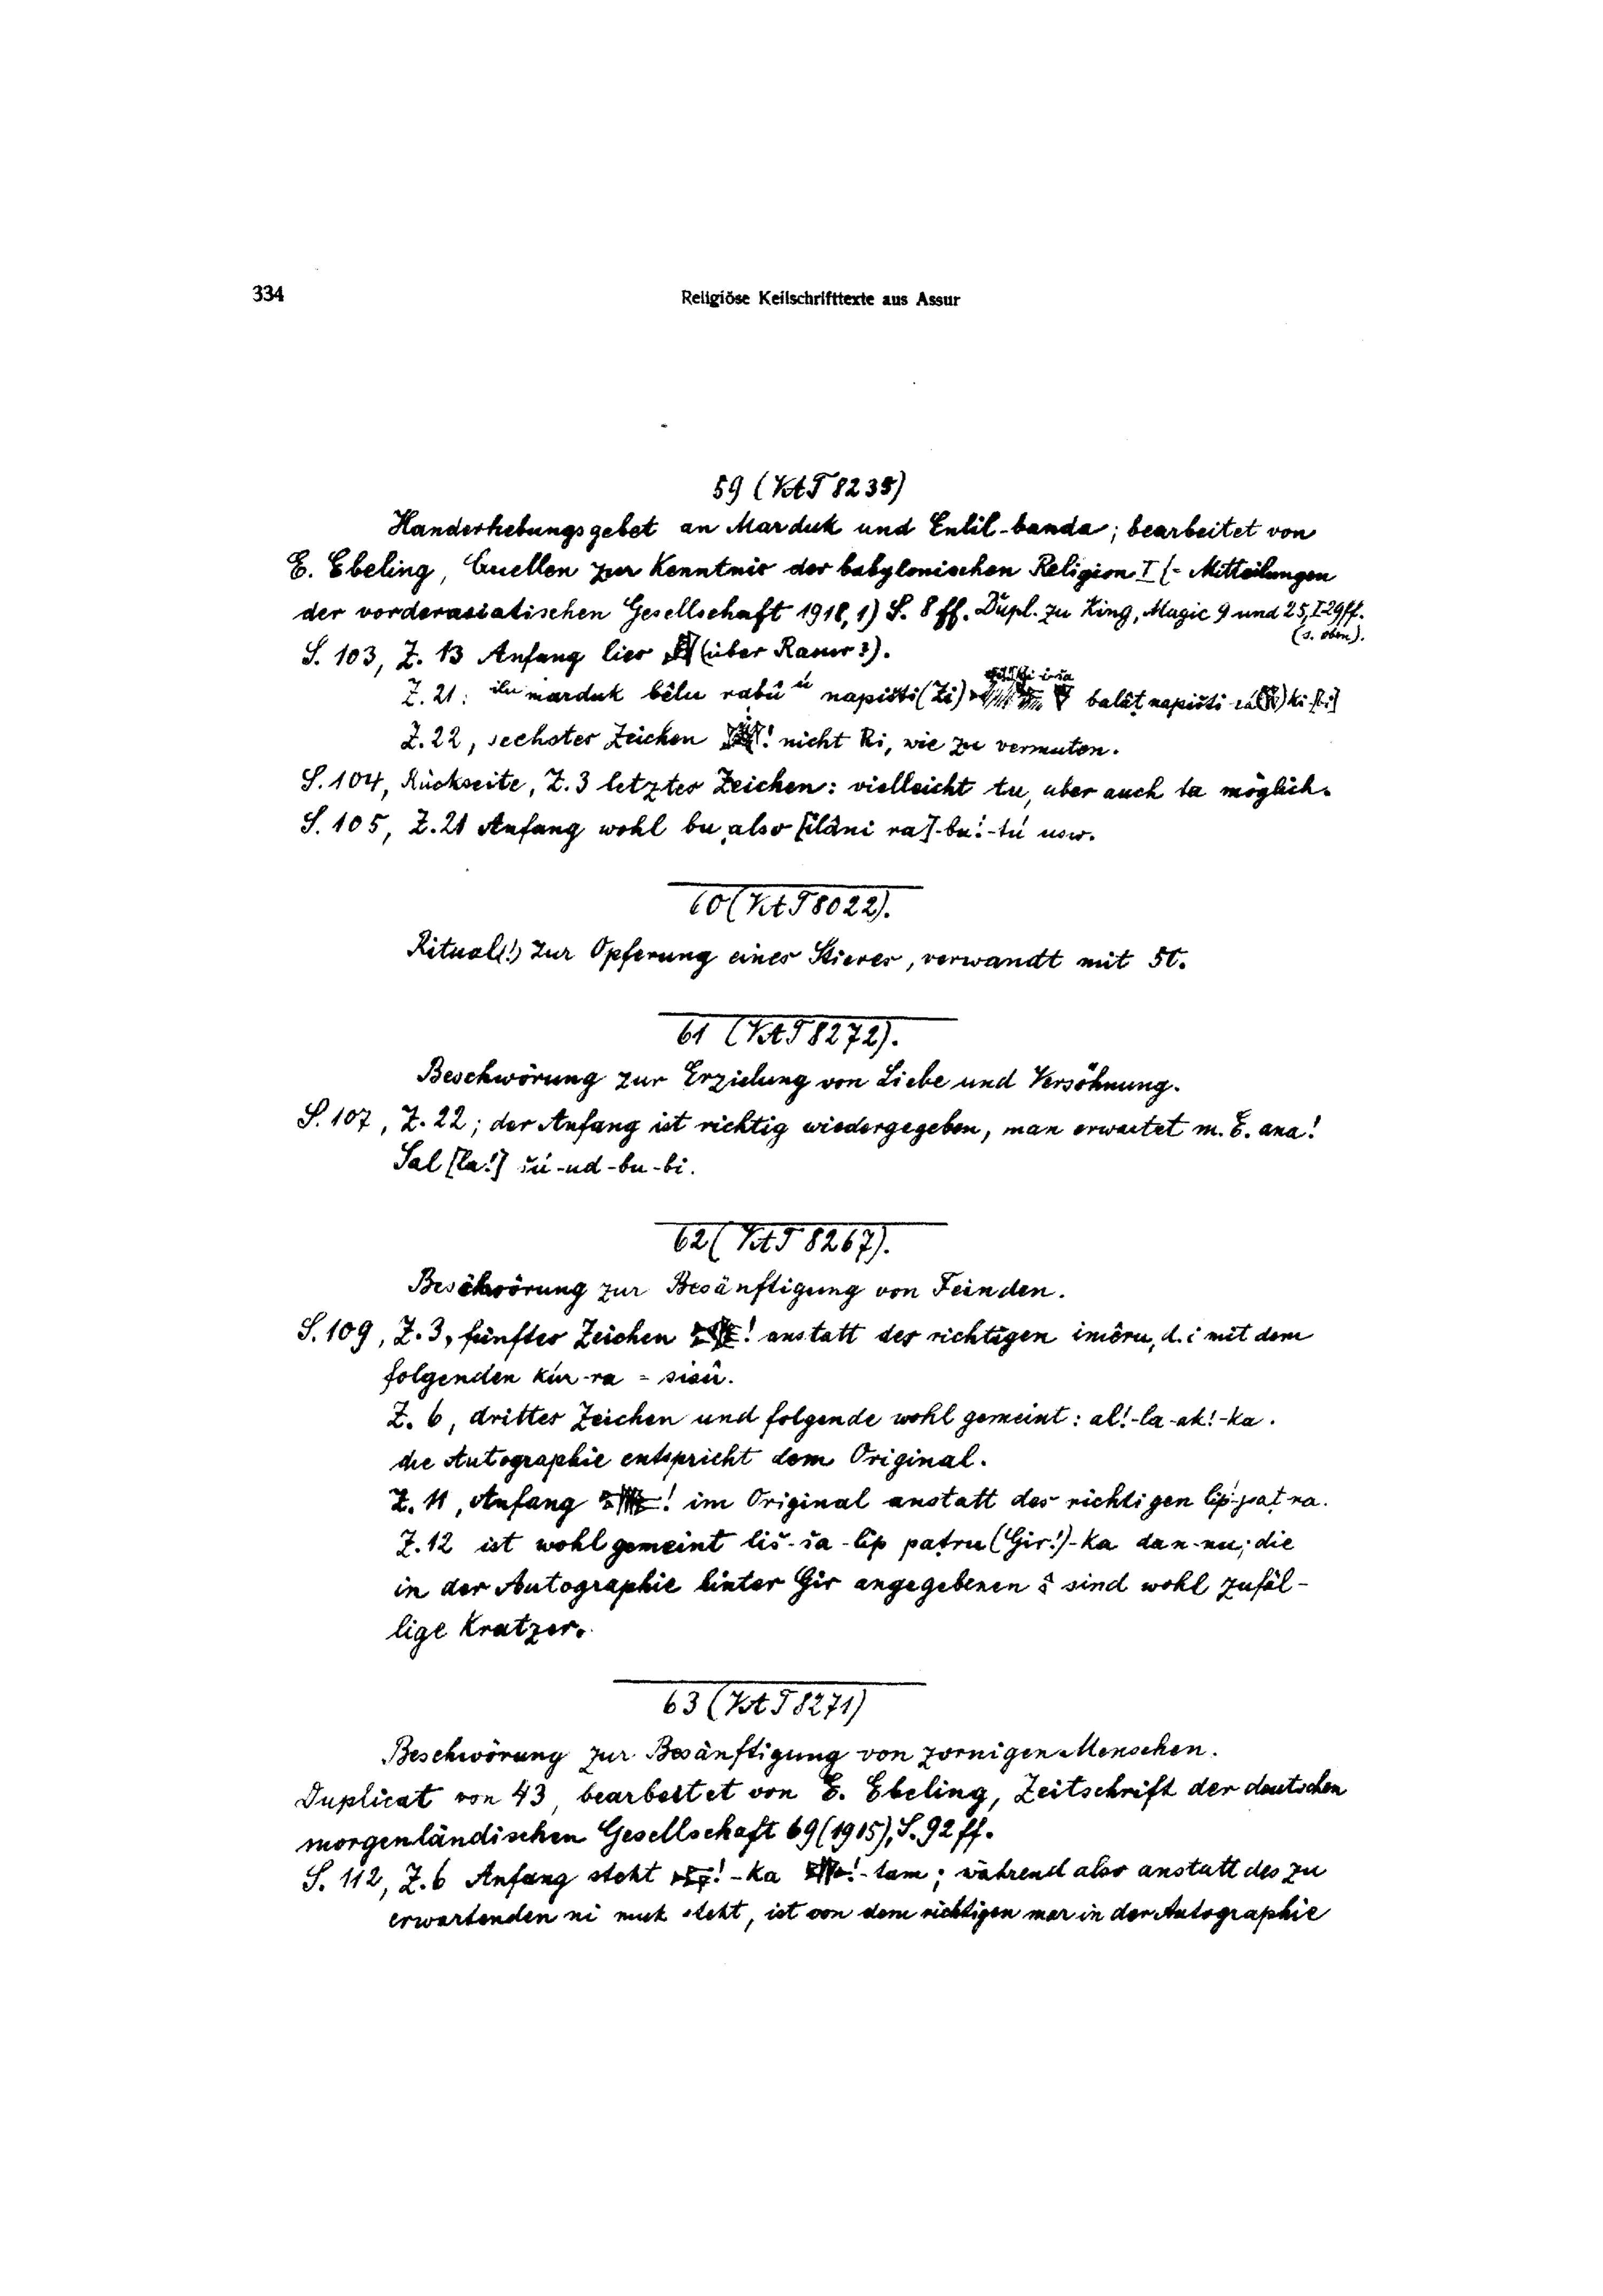 334
Religiöse Keilschrifttexte aus Assur
59 (VAT 8235)
Handerhebungsgebet an Marduk und Enlil-banda; bearbeitet von
E. Ebeling, Quellen zur Kenntnis der babylonischen Religion I (= Mitteilungen
der vorderasiatischen Gesellschaft 1918, 1) S. 8 ff. Dupl. zu King, Magic 9 und 25, I 29 ff.
(s. oben).
S. 103, Z. 13 Anfang lies (über Rasur?).
Z. 21: ilu marduk bêlu rabû ú napišti (Zi) balâṭ napišti
Z. 22, sechstes Zeichen ! nicht Ri, wie zu vermuten.
S. 104, Rückseite, Z. 3 letztes Zeichen: vielleicht tu, aber auch ta möglich.
S. 105, Z. 21 Anfang wohl bu, also [ilâni ra]-bu!-tú usw.
60 (VAT 8022).
Ritual(!) zur Opferung eines Stieres, verwandt mit 50.
61 (VAT 8272).
Beschwörung zur Erzielung von Liebe und Versöhnung.
S. 107, Z. 22; der Anfang ist richtig wiedergegeben, man erwartet m. E. ana!
Sal [la!] šú-ud-bu-bi.
62 (VAT 8267).
Beschwörung zur Besänftigung von Feinden.
S. 109, Z. 3, fünftes Zeichen ! anstatt des richtigen imêru, d. i mit dem
folgenden kúr-ra = sisû.
Z. 6, drittes Zeichen und folgende wohl gemeint: al!-la-ak!-ka.
die Autographie entspricht dem Original.
Z. 11, Anfang ! im Original anstatt des richtigen lip-paṭ-ra.
Z. 12 ist wohl gemeint liš-ša-lip paṭru (Gir!)-ka dan-nu; die
in der Autographie hinter Gir angegebenen sind wohl zufäl-
lige Kratzer.
63 (VAT 8271)
Beschwörung zur Besänftigung von zornigen Menschen.
Duplicat von 43, bearbeitet von E. Ebeling, Zeitschrift der deutschen
morgenländischen Gesellschaft 69 (1915), S. 92 ff.
S. 112, Z. 6 Anfang steht !-ka !-tam; während also anstatt des zu
erwartenden ni muk steht, ist von dem richtigen mar in der Autographie